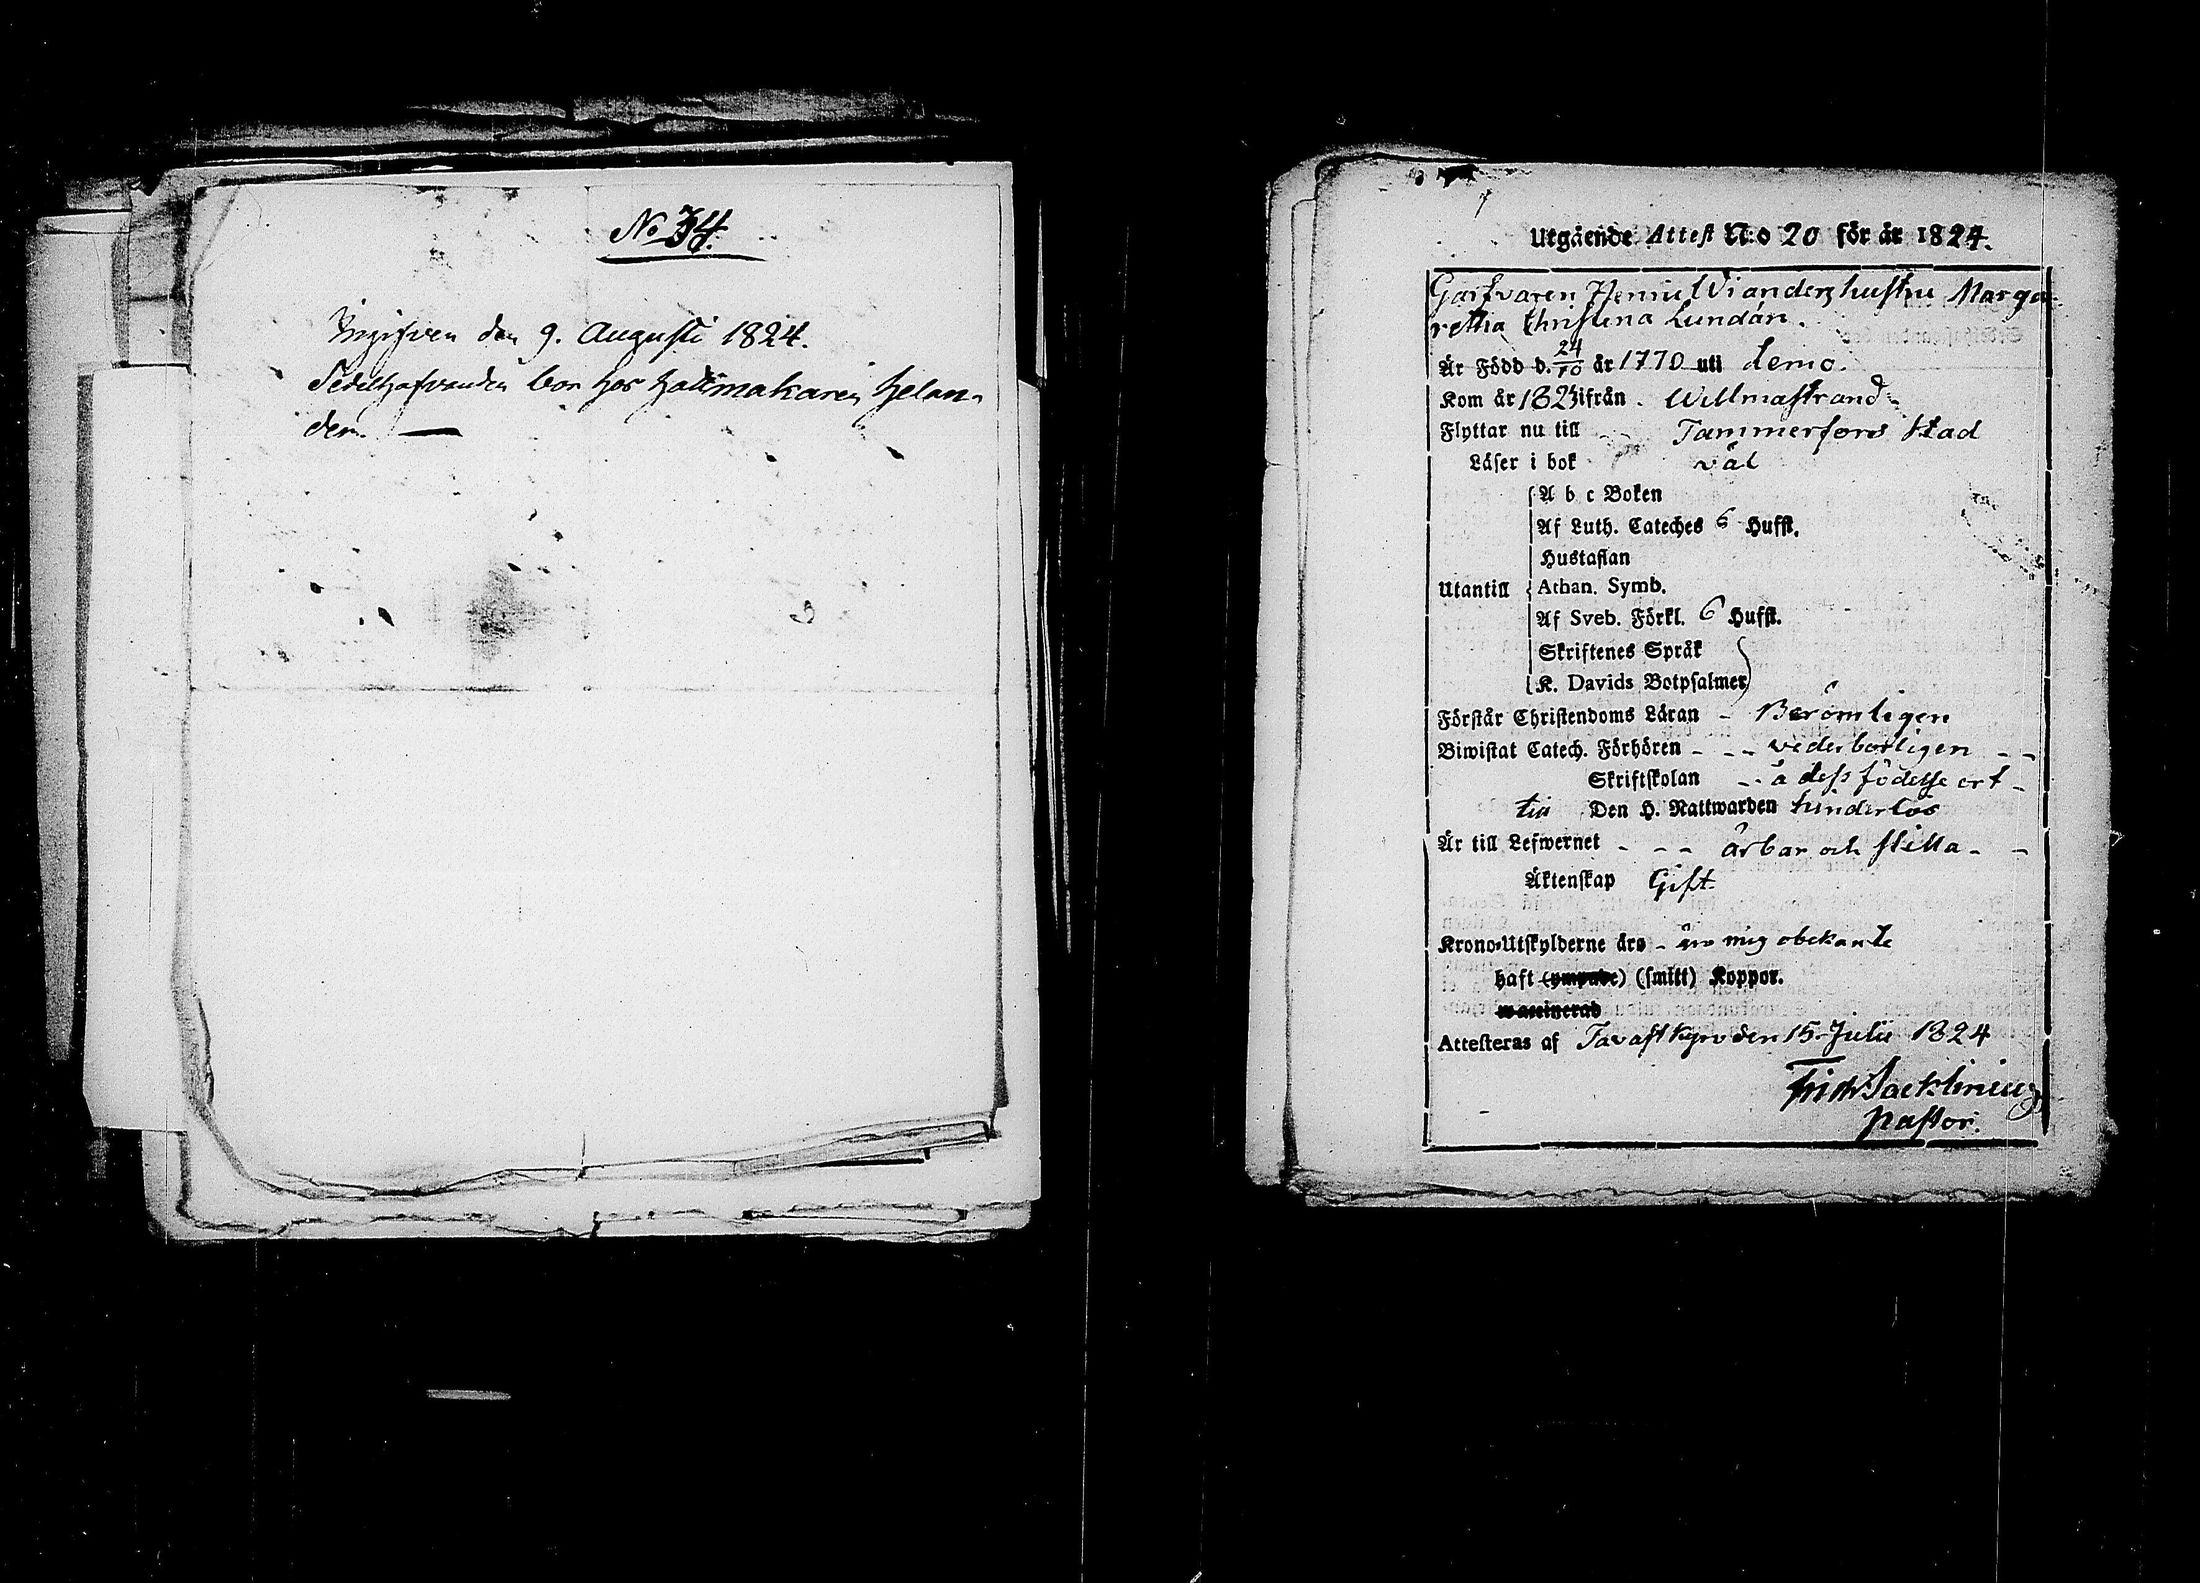 No 34.
Ingifven den 9. Augusti 1824.
Sedelhafvanden bor hos Hattmakaren Helan-
der.
Utgående Attest N:o 20 för år 1824.
Garfvaren Henric Wianders hustru Marga-
retha Christina Lundán.
Är Född d. 24/10 år 1770 uti Lemo.
Kom år 1823 ifrån Willmastrand
Flyttar nu till Tammerfors Stad
Läser i bok väl
A b c Boken
Af Luth. Cateches 6 Hufst.
Hustaflan
Utantill Athan. Symb.
Af Sveb. Förkl. 6 Hufst.
Skriftenes Språk
K. Davids Botpsalmer
Förstår Christendoms Läran - Berömligen
Biwistat Catech. Förhören - - - vederbörligen - -
Skriftskolan - - å dess födelse ort -
till Den H. Nattwarden hinderlös
Är till Lefwernet - - - ärbar och stilla - -
Äktenskap Gift
Krono-Utskylderne äro - äro mig obekante
haft (ympade) (smitt) Koppor.
waccinerad
Attesteras af Tavastkyro den 15 Julii 1824
Sacklinius
Pastor.